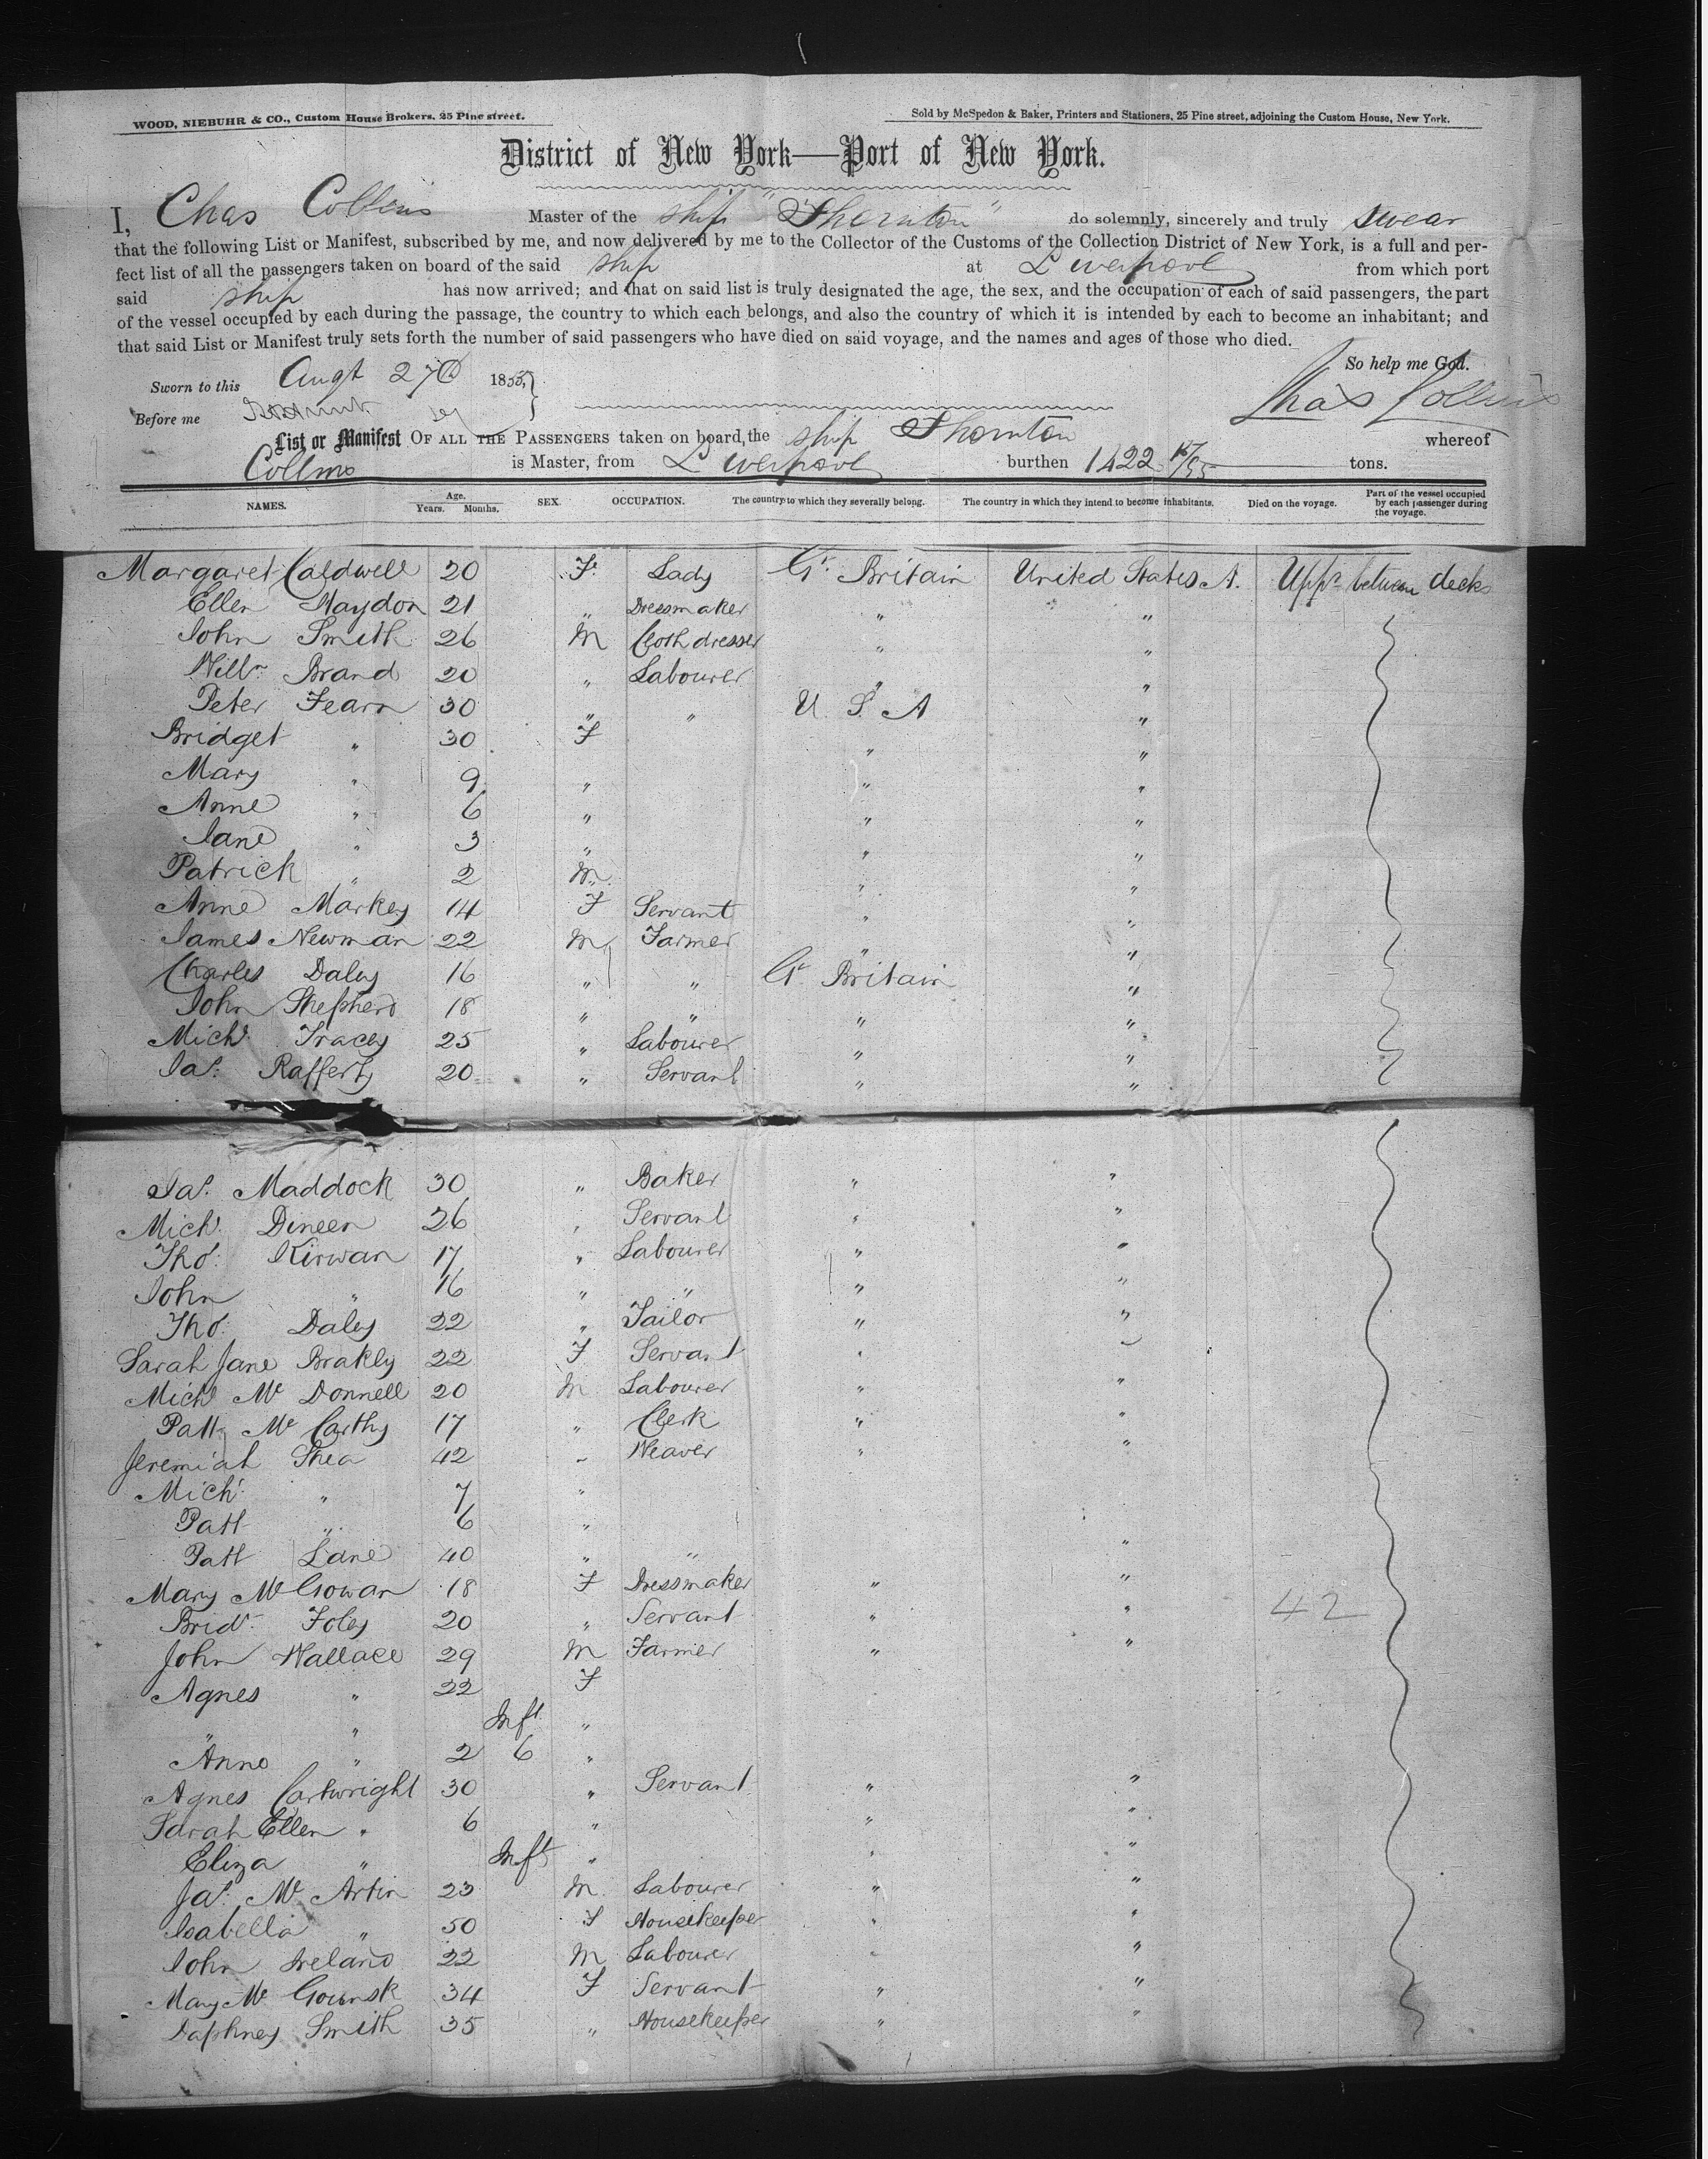 WOOD, NIEBUHR & CO., Custom House Brokers, 25 Pine street.
Sold by McSpedon & Baker, Printers and Stationers, 25 Pine street, adjoining the Custom House, New York.
District of New York—Port of New York.
I, Chas Collins Master of the ship "Thornton" do solemnly, sincerely and truly swear
that the following List or Manifest, subscribed by me, and now delivered by me to the Collector of the Customs of the Collection District of New York, is a full and per-
fect list of all the passengers taken on board of the said ship at Liverpool from which port
said ship has now arrived; and that on said list is truly designated the age, the sex, and the occupation of each of said passengers, the part
of the vessel occupied by each during the passage, the country to which each belongs, and also the country of which it is intended by each to become an inhabitant; and
that said List or Manifest truly sets forth the number of said passengers who have died on said voyage, and the names and ages of those who died.
So help me God.
Sworn to this Augt 27 1855,
Before me
Chas Collins
List or Manifest OF ALL THE PASSENGERS taken on board, the ship Thornton whereof
Collins is Master, from Liverpool burthen 1422 /95 tons.
NAMES. Age. Years. Months. SEX. OCCUPATION. The country to which they severally belong. The country in which they intend to become inhabitants. Died on the voyage. Part of the vessel occupied by each passenger during the voyage.
Margaret Caldwell 20 F. Lady Gt. Britain United States A. Uppr between decks
Ellen Haydon 21 " Dressmaker " "
John Smith 26 M Cloth dresser " "
Willm Brand 20 " Labourer " "
Peter Fearn 30 " " U. S. A "
Bridget " 30 F " "
Mary " 9 " " "
Anne " 6 " " "
Jane " 3 " " "
Patrick " 2 M " "
Anne Markey 14 F Servant " "
James Newman 22 M Farmer " "
Charles Daley 16 " " Gt Britain "
John Shepherd 18 " " " "
Michl Tracey 25 " Labourer " "
Jas. Rafferty 20 " Servant " "
Jas. Maddock 30 " Baker " "
Michl. Dineen 26 " Servant " "
Tho. Kirwan 17 " Labourer " "
John " 16 " " " "
Tho. Daley 22 " Tailor " "
Sarah Jane Brakly 22 F Servant " "
Michl Mc Donnell 20 M Labourer " "
Patt Mc Carthy 17 " Clerk " "
Jeremiah Shea 42 " Weaver " "
Michl " 7 "
Patt " 6 "
Patt Lane 40 " " "
Mary Mc Gowan 18 F Dressmaker " "
Bridt. Foley 20 " Servant " " 42
John Wallace 29 M Farmer " "
Agnes " 22 F
" " Inft "
Anne " 2 6 "
Agnes Cartwright 30 " Servant " "
Sarah Ellen " 6 " " "
Eliza " Inft " " "
Jas. Mc Artin 23 M. Labourer " "
Isabella " 50 F Housekeeper " "
John Ireland 22 M Labourer " "
Mary Mc 34 F Servant " "
Daphney Smith 35 " Housekeeper " "